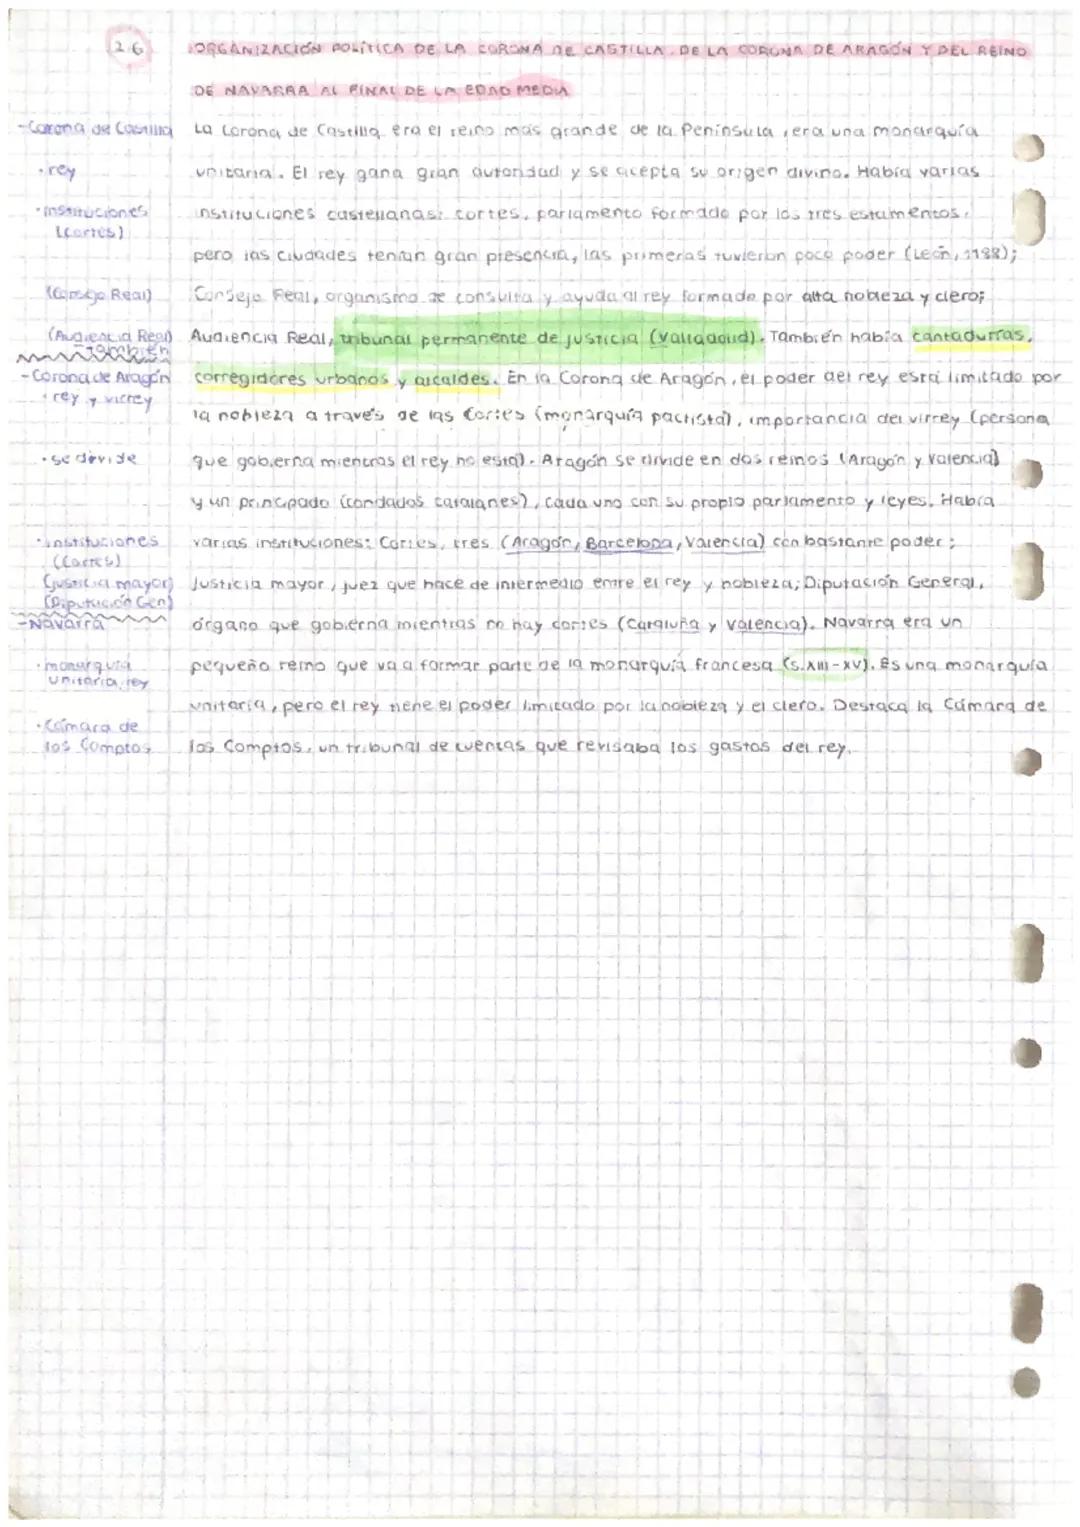 2.6 ORGANIZACIÓN POLÍTICA DE LA CORONA DE CASTILLA, DE LA CORONA DE ARAGÓN Y DEL REINO
DE NAVARRA AL FINAL DE LA EDAD MEDIA
-Corona de Castilla La Corona de Castilla era el reino más grande de la Península, era una monarquía
·rey unitaria. El rey gana gran autoridad y se acepta su origen divino. Había varias
·instituciones instituciones castellanas: cortes, parlamento formado por los tres estamentos,
(cortes)
pero las ciudades tenían gran presencia, las primeras tuvieron poco poder (León, 1188);
(Consejo Real) Consejo Real, organismo de consulta y ayuda al rey formado por alta nobleza y clero;
(Audiencia Real) Audiencia Real, tribunal permanente de justicia (Valladolid). También había contadurías,
-También
-Corona de Aragón corregidores urbanos y alcaldes. En la Corona de Aragón, el poder del rey está limitado por
·rey y virrey
la nobleza a través de las Cortes (monarquía pactista), importancia del virrey (persona
·se divide que gobierna mientras el rey no está). Aragón se divide en dos reinos (Aragón y Valencia)
y un principado (condados catalanes), cada uno con su propio parlamento y leyes. Había
·instituciones varias instituciones: Cortes, tres (Aragón, Barcelona, Valencia) con bastante poder;
(Cortes)
(justicia mayor) Justicia mayor, juez que hace de intermedio entre el rey y nobleza; Diputación General,
(Diputación Gen)
-Navarra órgano que gobierna mientras no hay cortes (Cataluña y Valencia). Navarra era un
·monarquía pequeño reino que va a formar parte de la monarquía francesa (s.XIII-XV). Es una monarquía
unitaria, rey
unitaria, pero el rey tiene el poder limitado por la nobleza y el clero. Destaca la Cámara de
·Cámara de
los Comptos los Comptos, un tribunal de cuentas que revisaba los gastos del rey.